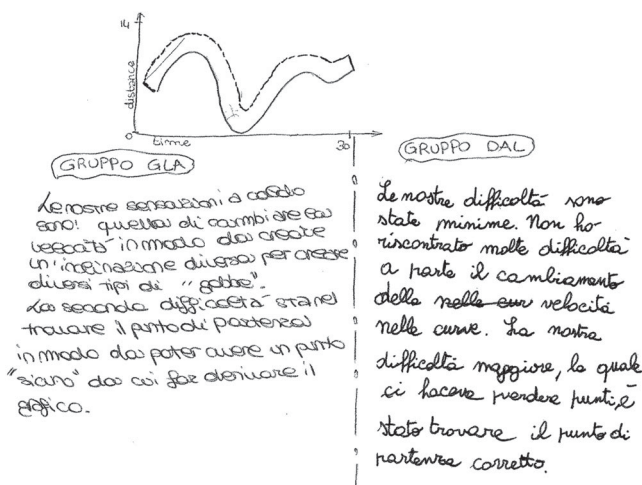 14
distance
0
time
30
GRUPPO GLA
Le nostre sensazioni a caldo
sono: quella di cambiare la
velocità in modo da creare
un'inclinazione diversa per creare
diversi tipi di "gobbe".
La seconda difficoltà sta nel
trovare il punto di partenza
in modo da poter avere un punto
"sicuro" da cui far derivare il
grafico.
GRUPPO DAL
Le nostre difficoltà sono
state minime. Non ho
riscontrato molte difficoltà
a parte il cambiamento
della nelle cur velocità
nelle curve. La nostra
difficoltà maggiore, la quale
ci faceva perdere punti, è
stato trovare il punto di
partenza corretto.